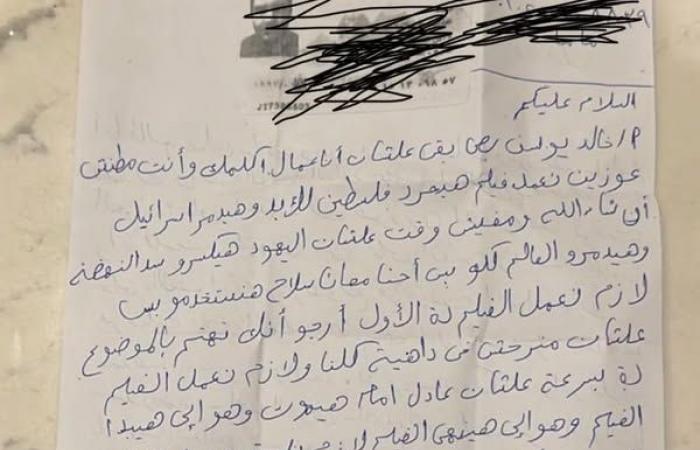 السلام عليكم
أ/ خالد يوسف بص بقى علشان أنا عمال أكلمك وأنت مطنش
عوزين نعمل فيلم هيحرر فلسطين للأبد وهيدمر اسرائيل
أن شاء الله ومفيش وقت علشان اليهود هيكسرو سد النهضة
وهيدمرو العالم كلو بس أحنا معانا سلاح هنستخدمو بس
لازم نعمل الفيلم دة الأول أرجو أنك تهتم بالموضوع
دة بسرعة علشان منرحش فى داهية كلنا ولازم نعمل الفيلم
علشان عادل امام هيموت وهو إلى هيبدأ
الفيلم وهو إلى هينهى الفيلم لازم